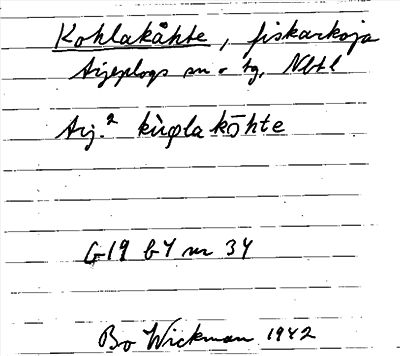 Kohlakåhte, fiskarkoja
Arjeplogs sn o tg, Nbtl
Arj.² kùφla kō̭hte
G19 b7 nr 34
Bo Wickman 1942